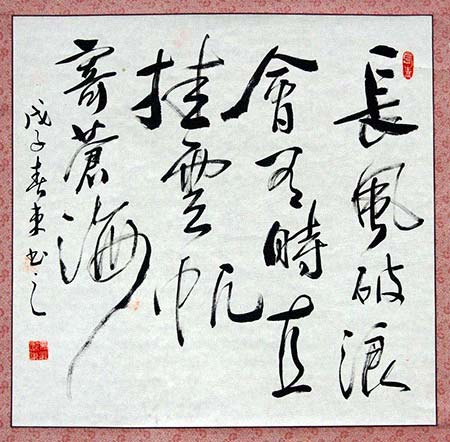 長風破浪
會有時直
挂雲帆
寄蒼海
戊子春東书之